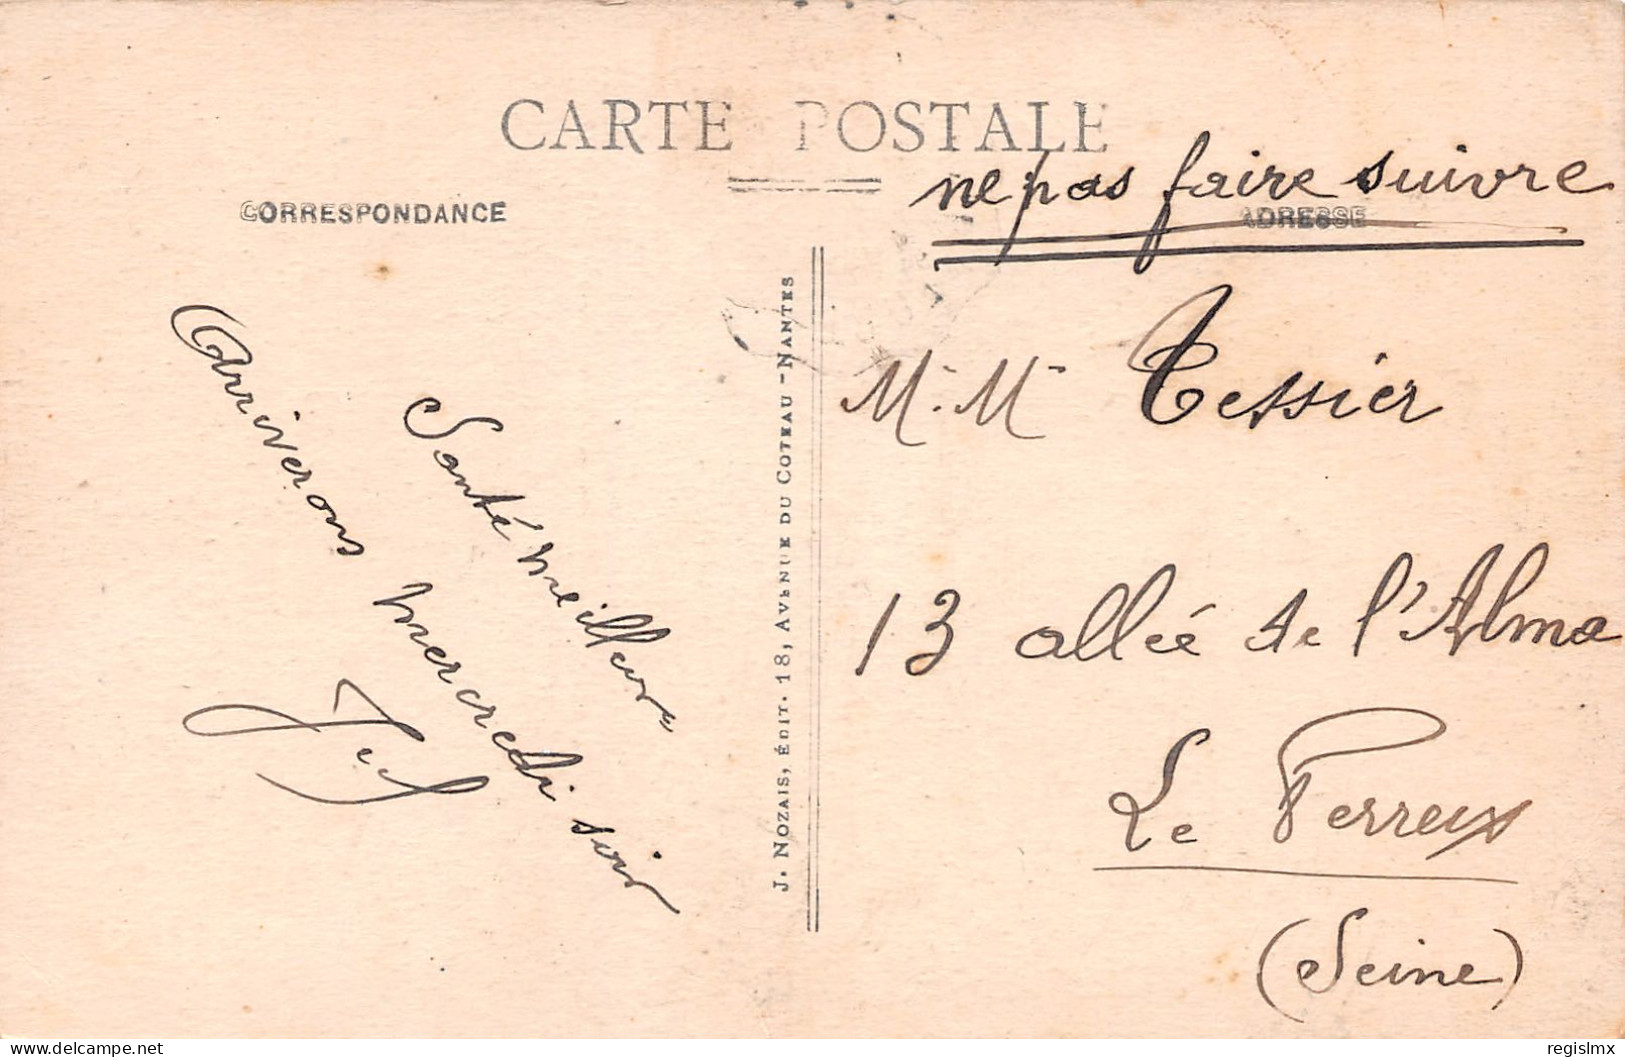 CARTE POSTALE
CORRESPONDANCE
ADRESSE
ne pas faire suivre
Santé meilleure
Arriverons mercredi soir
J. NOZAIS, ÉDIT. 18, AVENUE DU COTEAU - NANTES
M. M Tessier
13 allée de l'Alma
Le Perreux
(Seine)
delcampe.net
regislmx